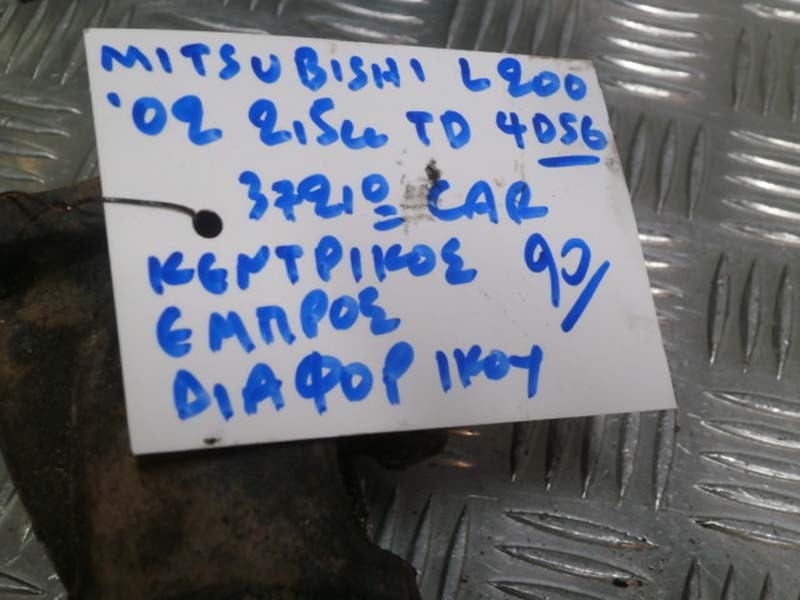 MITSUBISHI L200
'02 2,5cc TD 4D56
3721º CAR
ΚΕΝΤΡΙΚΟΣ 90/
ΕΜΠΡΟΣ
ΔΙΑΦΟΡΙΚΟΥ